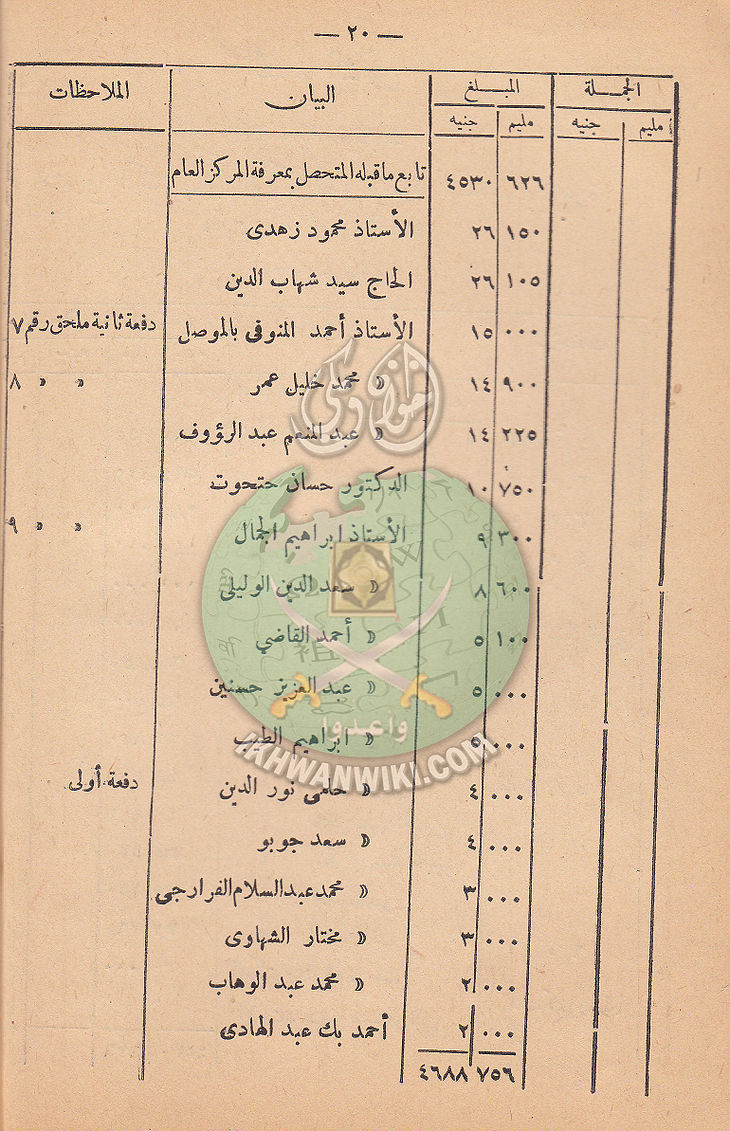 — ٢٠ —
الجملة المبلغ البيان الملاحظات
مليم جنيه مليم جنيه
٦٢٦ ٤٥٣٠ تابع ما قبله المتحصل بمعرفة المركز العام
١٥٠ ٢٦ الأستاذ محمود زهدى
١٠٥ ٢٦ الحاج سيد شهاب الدين
٠٠٠ ١٥ الأستاذ أحمد المنوفى بالموصل دفعة ثانية ملحق رقم ٧
٩٠٠ ١٤ » محمد خليل عمر » » ٨
٢٢٥ ١٤ » عبد المنعم عبد الرؤوف
٧٥٠ ١٠ الدكتور حسان حتحوت
٣٠٠ ٩ الأستاذ ابراهيم الجمال » » ٩
٦٠٠ ٨ » سعد الدين الوليلى
١٠٠ ٥ » أحمد القاضي
٠٠٠ ٥ » عبد العزيز حسنين
٠٠٠ ٥ » ابراهيم الطيب
٠٠٠ ٤ » حلمى نور الدين دفعة أولى
٠٠٠ ٤ » سعد جوبو
٠٠٠ ٣ » محمد عبد السلام الفرارجى
٠٠٠ ٣ » مختار الشهاوى
٠٠٠ ٢ » محمد عبد الوهاب
٠٠٠ ٢ أحمد بك عبد الهادى
٧٥٦ ٤٦٨٨
واعدوا
IKHWANWIKI.COM